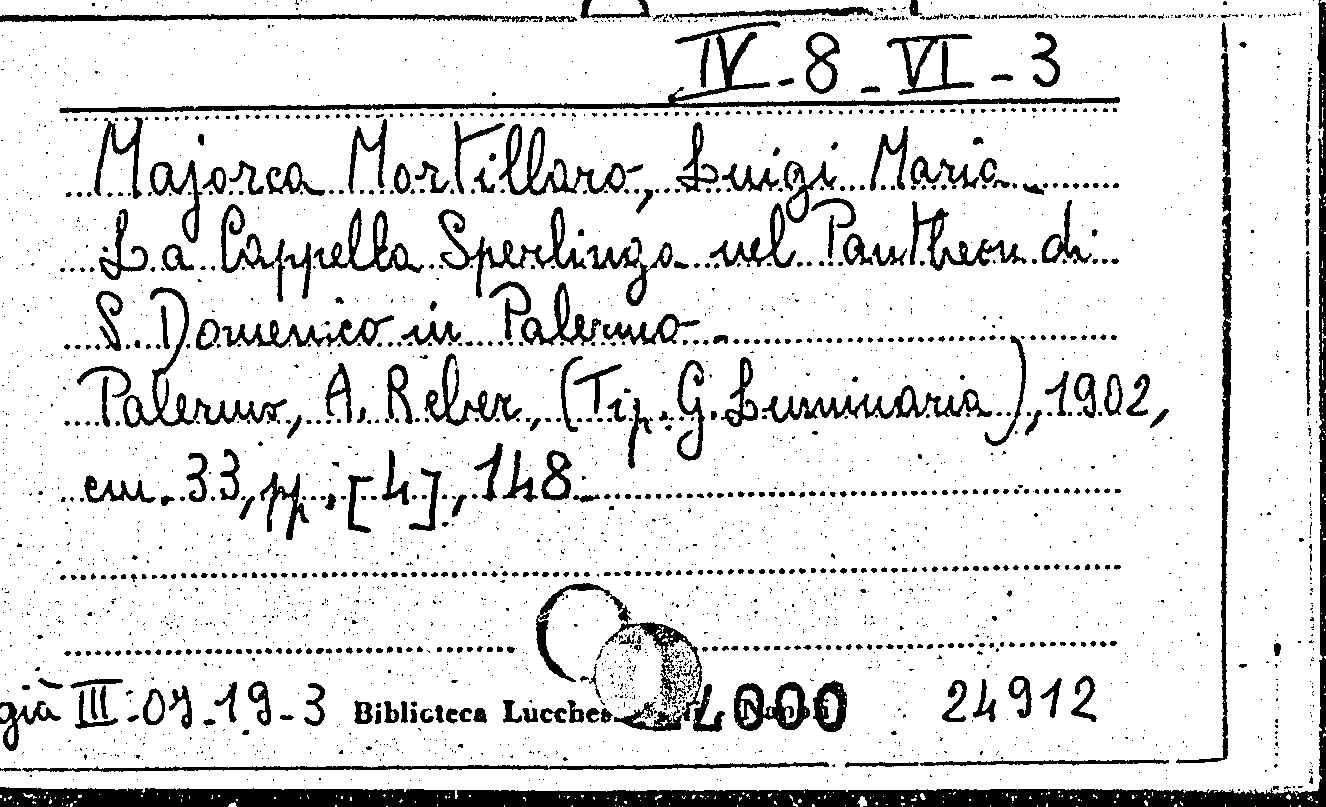 IV-8-VI-3
Majorca Mortillaro, Luigi Maria-
La Cappella Sperlinga nel Pantheon di
S. Domenico in Palermo-
Palermo, A. Reber, (Tip. G. Luminaria), 1902,
cm. 33, pp. [4], 148-
già III-07-19-3 Biblioteca 4000 24912